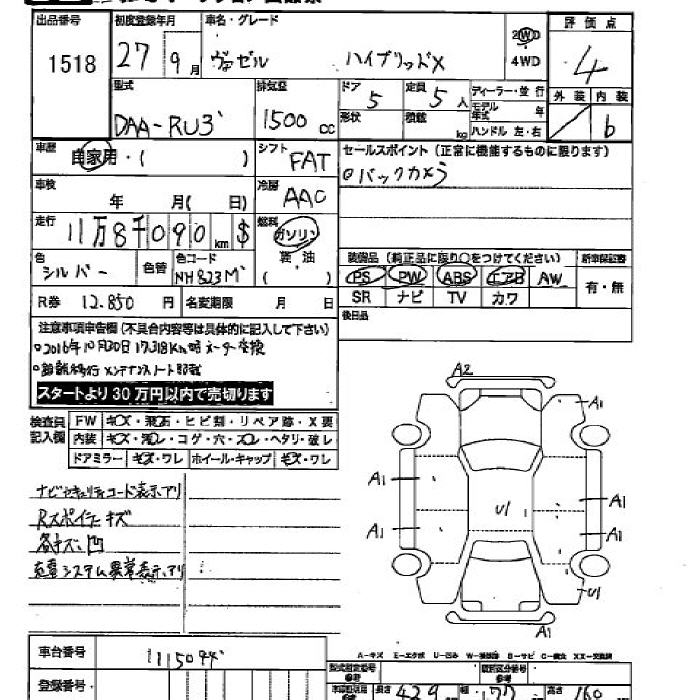 出品番号 初度登録年月 車名・グレード 評価点
1518 27 9月 ヴェゼル ハイブリッドX 2WD 4WD 4
型式 排気量 ドア 定員 ディーラー・並行 外装 内装
DAA-RU3 1500cc 5 5人 モデル年式 年 b
形状 積載 kg ハンドル 左・右
車歴 自家用・( ) シフト FAT セールスポイント(正常に機能するものに限ります)
車検 年 月( 日) 冷房 AAC ○バックカメラ
走行 11万8千090km $ 燃料 ガソリン 軽油 ( )
色 シルバー 色替 色コード NH823M 装備品(純正品に限り○をつけてください) 新車保証書
PS PW ABS エアB AW 有・無
R券 12.850円 名変期限 月 日 SR ナビ TV カワ
後日品
注意事項申告欄(不具合内容等は具体的に記入して下さい)
○2016年10月30日 17,318Km時メーター交換
メンテナンスノート記載
スタートより30万円以内で売切ります
検査員記入欄 FW キズ・飛石・ヒビ割・リペア跡・X要
内装 キズ・汚レ・コゲ・穴・スレ・ヘタリ・破レ
ドアミラー キズ・ワレ ホイール・キャップ キズ・ワレ
A2
A1
A1
A1
U1
A1
A1
U1
A1
ナビセキュリティコード表示アリ
Rスポイラーキズ
各キズ、凹
充電システム異常表示アリ
A-キズ E-エクボ U-凹み W-補修跡 B-サビ C-腐食 XX-交換跡
車台番号 1115094
登録番号
型式指定番号 参考 類別区分番号 参考
長さ 429 幅 177 高さ 160